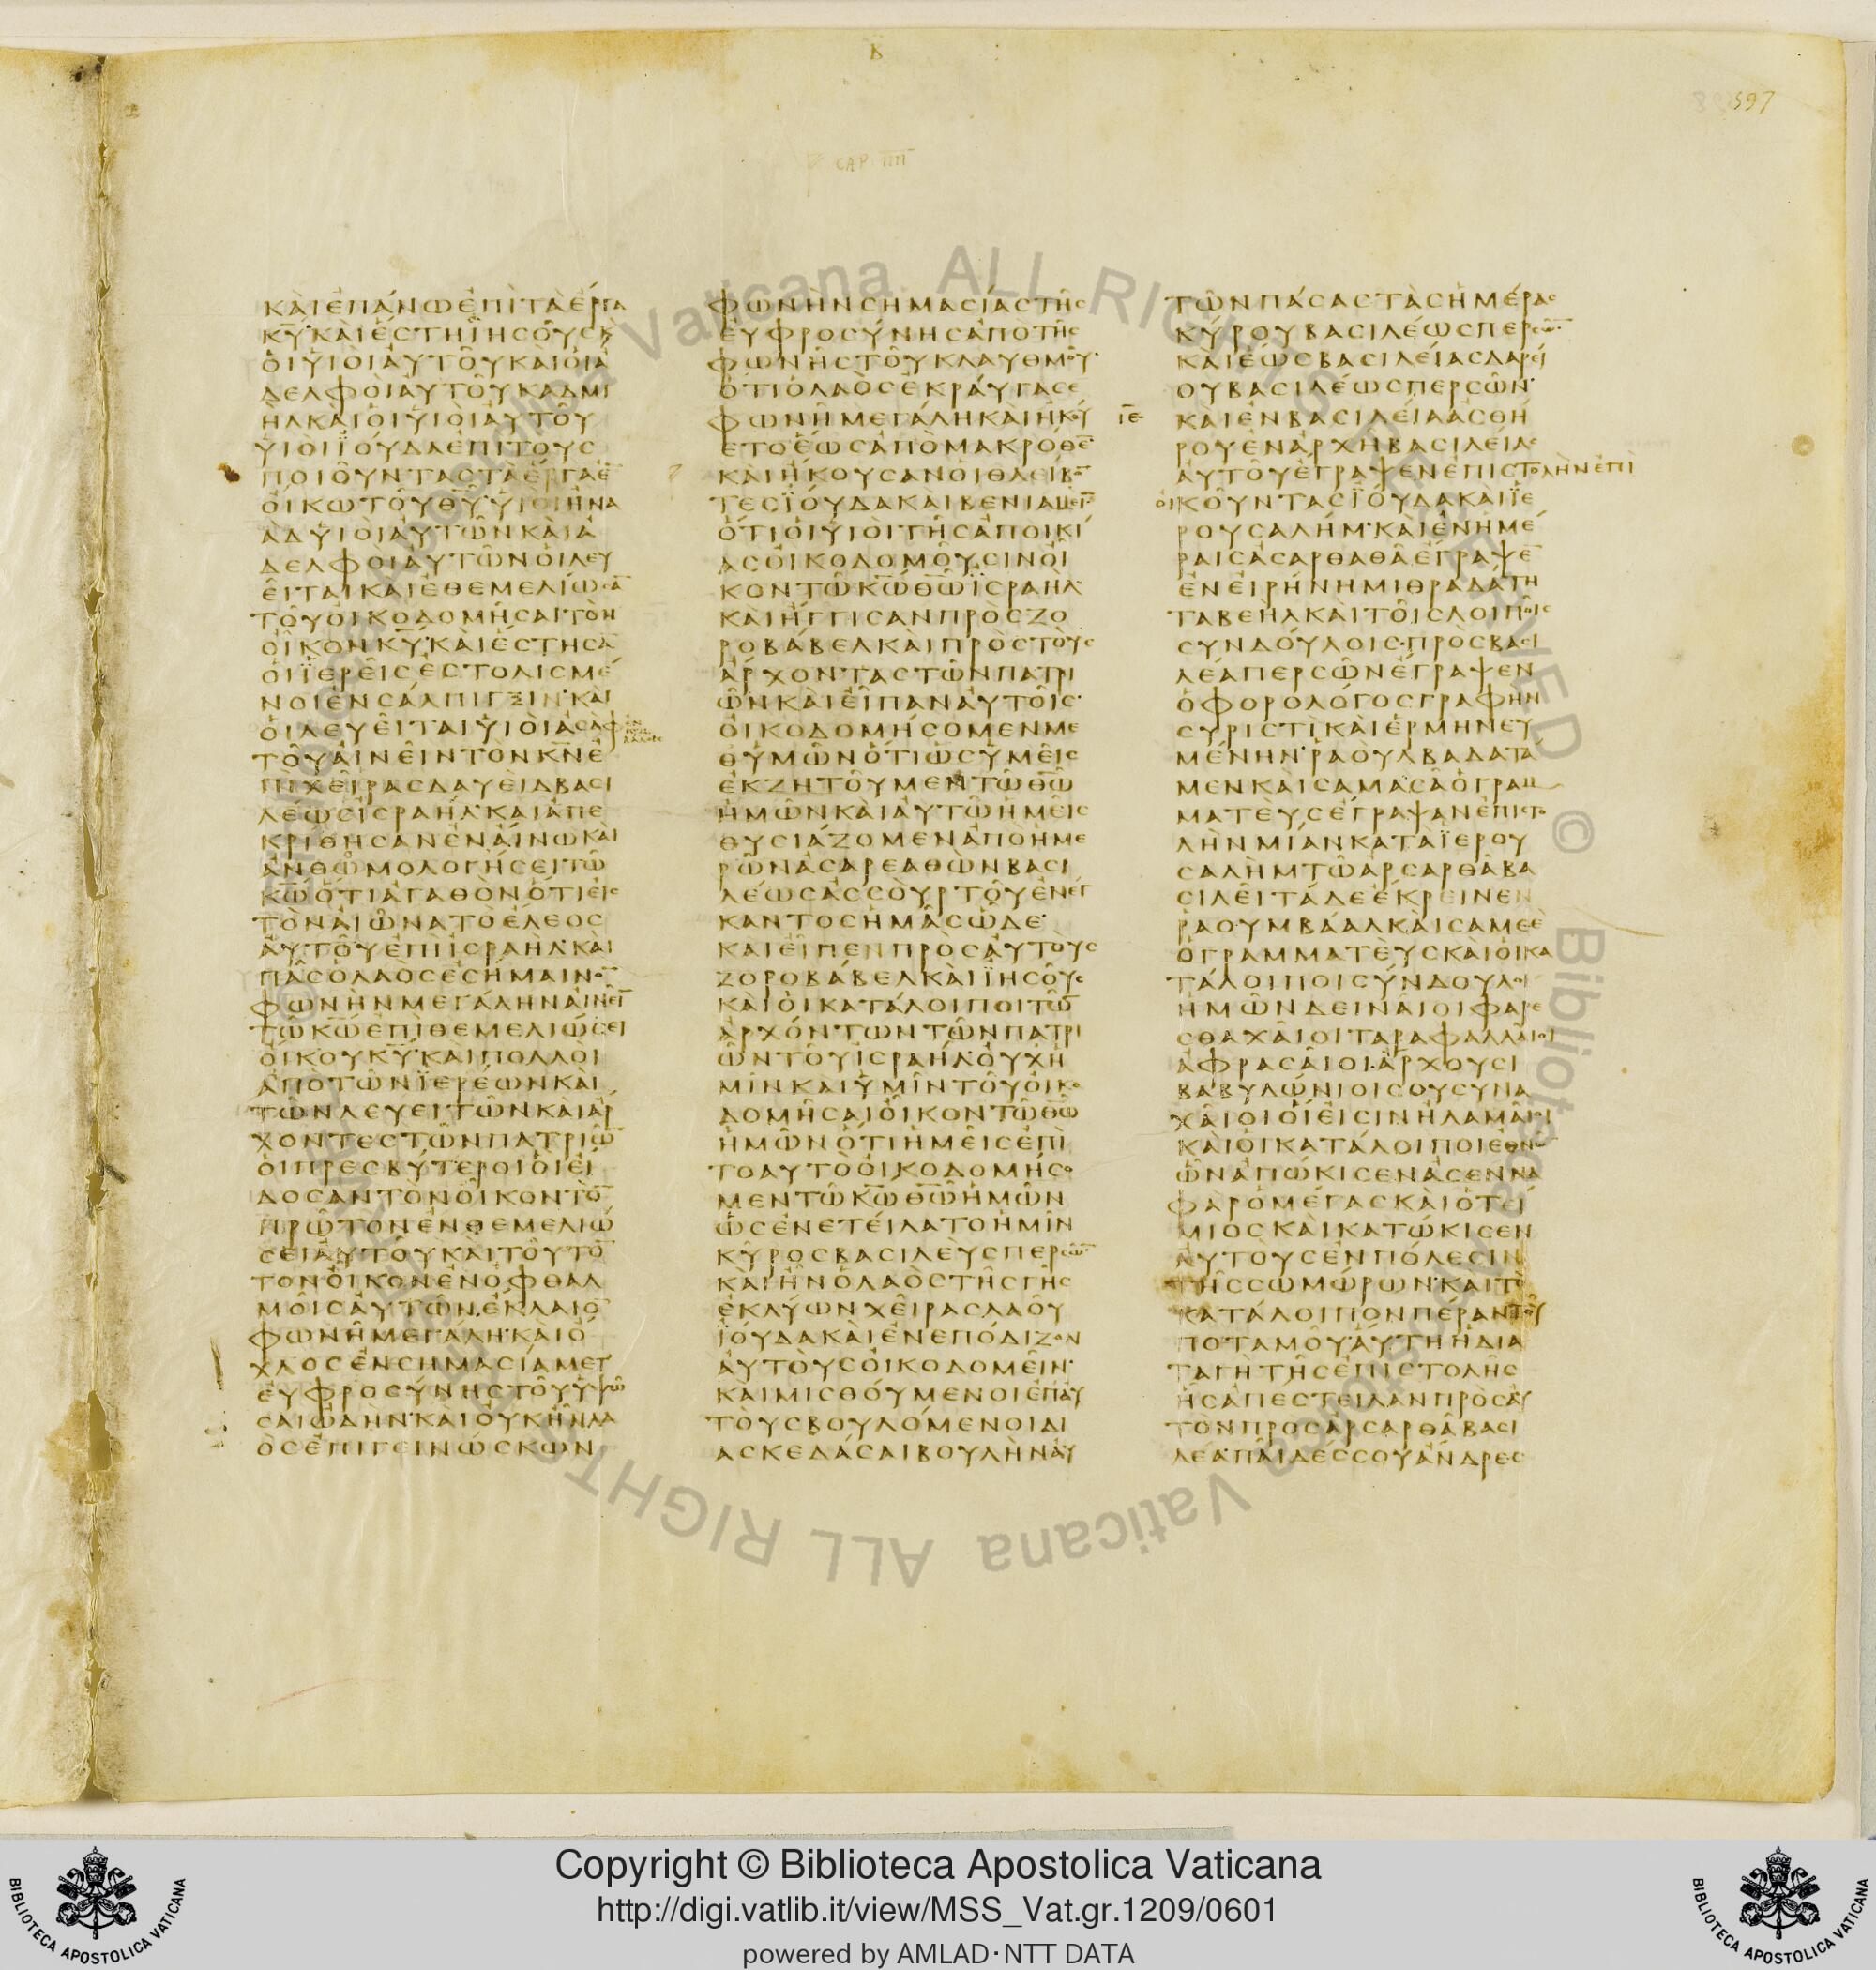 Β
597
CAP IIII
ΚΑΙΕΠΑΝΩΕΠΙΤΑΕΡΓΑ
ΚΥ ΚΑΙΕΣΤΗΙΗΣΟΥΣΚ
ΟΙΥΙΟΙΑΥΤΟΥΚΑΙΟΙΑ
ΔΕΛΦΟΙΑΥΤΟΥΚΑΔΜΙ
ΗΛΚΑΙΟΙΥΙΟΙΑΥΤΟΥ
ΥΙΟΙΙΟΥΔΑΕΠΙΤΟΥΣ
ΠΟΙΟΥΝΤΑΣΤΑΕΡΓΑΕ
ΟΙΚΩΤΟΥΘΥ ΥΙΟΙΗΝΑ
ΑΔΥΙΟΙΑΥΤΩΝΚΑΙΑ
ΔΕΛΦΟΙΑΥΤΩΝΟΙΛΕΥ
ΕΙΤΑΙΚΑΙΕΘΕΜΕΛΙΩΣΑ
ΤΟΥΟΙΚΟΔΟΜΗΣΑΙΤΟΝ
ΟΙΚΟΝΚΥ ΚΑΙΕΣΤΗΣΑ
ΟΙΙΕΡΕΙΣΕΣΤΟΛΙΣΜΕ
ΝΟΙΕΝΣΑΛΠΙΓΞΙΝ ΚΑΙ
ΟΙΛΕΥΕΙΤΑΙΥΙΟΙΑΣΑΦ
ΤΟΥΑΙΝΕΙΝΤΟΝΚΝΕ
ΠΙΧΕΙΡΑΣΔΑΥΕΙΔΒΑΣΙ
ΛΕΩΣΙΣΡΑΗΛ ΚΑΙΑΠΕ
ΚΡΙΘΗΣΑΝΕΝΑΙΝΩΚΑΙ
ΑΝΘΟΜΟΛΟΓΗΣΕΙΤΩ
ΚΩΟΤΙΑΓΑΘΟΝΟΤΙΕΙΣ
ΤΟΝΑΙΩΝΑΤΟΕΛΕΟΣ
ΑΥΤΟΥΕΠΙΙΣΡΑΗΛ ΚΑΙ
ΠΑΣΟΛΑΟΣΕΣΗΜΑΙΝΟ
ΦΩΝΗΝΜΕΓΑΛΗΝΑΙΝΕΙ
ΤΩΚΩΕΠΙΘΕΜΕΛΙΩΣΕΙ
ΟΙΚΟΥΚΥ ΚΑΙΠΟΛΛΟΙ
ΑΠΟΤΩΝΙΕΡΕΩΝΚΑΙ
ΤΩΝΛΕΥΕΙΤΩΝΚΑΙΑΡ
ΧΟΝΤΕΣΤΩΝΠΑΤΡΙΩ
ΟΙΠΡΕΣΒΥΤΕΡΟΙΟΙΕΙ
ΔΟΣΑΝΤΟΝΟΙΚΟΝΤΟ
ΠΡΩΤΟΝΕΝΘΕΜΕΛΙΩ
ΣΕΙΑΥΤΟΥΚΑΙΤΟΥΤΟ
ΤΟΝΟΙΚΟΝΕΝΟΦΘΑΛ
ΜΟΙΣΑΥΤΩΝ ΕΚΛΑΙΟ
ΦΩΝΗΜΕΓΑΛΗ ΚΑΙΟ
ΧΛΟΣΕΝΣΗΜΑΣΙΑΜΕΤ
ΕΥΦΡΟΣΥΝΗΣΤΟΥΥΨΩ
ΣΑΙΩΔΗΝ ΚΑΙΟΥΚΗΝΛΑ
ΟΣΕΠΙΓΕΙΝΩΣΚΩΝ
ΦΩΝΗΝΣΗΜΑΣΙΑΣΤΗΣ
ΕΥΦΡΟΣΥΝΗΣΑΠΟΤΗΣ
ΦΩΝΗΣΤΟΥΚΛΑΥΘΜΟΥ
ΟΤΙΟΛΑΟΣΕΚΡΑΥΓΑΣΕ
ΦΩΝΗΜΕΓΑΛΗΚΑΙΗΚΟΥ
ΕΤΟΕΩΣΑΠΟΜΑΚΡΟΘΕ
ΚΑΙΗΚΟΥΣΑΝΟΙΘΛΕΙΒΟ
ΤΕΣΙΟΥΔΑΚΑΙΒΕΝΙΑΜΕΙ
ΟΤΙΟΙΥΙΟΙΤΗΣΑΠΟΙΚΙ
ΑΣΟΙΚΟΔΟΜΟΥΣΙΝΟΙ
ΚΟΝΤΩΚΩΘΩΙΣΡΑΗΛ
ΚΑΙΗΓΓΙΣΑΝΠΡΟΣΖΟ
ΡΟΒΑΒΕΛΚΑΙΠΡΟΣΤΟΥΣ
ΑΡΧΟΝΤΑΣΤΩΝΠΑΤΡΙ
ΩΝΚΑΙΕΙΠΑΝΑΥΤΟΙΣ
ΟΙΚΟΔΟΜΗΣΟΜΕΝΜΕ
ΘΥΜΩΝΟΤΙΩΣΥΜΕΙΣ
ΕΚΖΗΤΟΥΜΕΝΤΩΘΩ
ΗΜΩΝΚΑΙΑΥΤΩΗΜΕΙΣ
ΘΥΣΙΑΖΟΜΕΝΑΠΟΗΜΕ
ΡΩΝΑΣΑΡΕΑΘΩΝΒΑΣΙ
ΛΕΩΣΑΣΣΟΥΡΤΟΥΕΝΕΓ
ΚΑΝΤΟΣΗΜΑΣΩΔΕ
ΚΑΙΕΙΠΕΝΠΡΟΣΑΥΤΟΥΣ
ΖΟΡΟΒΑΒΕΛΚΑΙΙΗΣΟΥΣ
ΚΑΙΟΙΚΑΤΑΛΟΙΠΟΙΤΩ
ΑΡΧΟΝΤΩΝΤΩΝΠΑΤΡΙ
ΩΝΤΟΥΙΣΡΑΗΛ ΟΥΧΗ
ΜΙΝΚΑΙΥΜΙΝΤΟΥΟΙΚΟ
ΔΟΜΗΣΑΙΟΙΚΟΝΤΩΘΩ
ΗΜΩΝΟΤΙΗΜΕΙΣΕΠΙ
ΤΟΑΥΤΟΟΙΚΟΔΟΜΗΣΟ
ΜΕΝΤΩΚΩΘΩΗΜΩΝ
ΩΣΕΝΕΤΕΙΛΑΤΟΗΜΙΝ
ΚΥΡΟΣΒΑΣΙΛΕΥΣΠΕΡΣΩ
ΚΑΙΗΝΟΛΑΟΣΤΗΣΓΗΣ
ΕΚΛΥΩΝΧΕΙΡΑΣΛΑΟΥ
ΙΟΥΔΑΚΑΙΕΝΕΠΟΔΙΖΟΝ
ΑΥΤΟΥΣΟΙΚΟΔΟΜΕΙΝ
ΚΑΙΜΙΣΘΟΥΜΕΝΟΙΕΠΑΥ
ΤΟΥΣΒΟΥΛΟΜΕΝΟΙΔΙ
ΑΣΚΕΔΑΣΑΙΒΟΥΛΗΝΑΥ
ΤΩΝΠΑΣΑΣΤΑΣΗΜΕΡΑΣ
ΚΥΡΟΥΒΑΣΙΛΕΩΣΠΕΡΣΩ
ΚΑΙΕΩΣΒΑΣΙΛΕΙΑΣΔΑΡΕΙ
ΟΥΒΑΣΙΛΕΩΣΠΕΡΣΩΝ
ΚΑΙΕΝΒΑΣΙΛΕΙΑΑΣΘΗ
ΡΟΥΕΝΑΡΧΗΒΑΣΙΛΕΙΑΣ
ΑΥΤΟΥΕΓΡΑΨΕΝΕΠΙΣΤΟΛΗΝΕΠΙ
ΟΙΚΟΥΝΤΑΣΙΟΥΔΑΚΑΙΙΕ
ΡΟΥΣΑΛΗΜ ΚΑΙΕΝΗΜΕ
ΡΑΙΣΑΣΑΡΘΑΘΑΕΓΡΑΨΕ
ΕΝΕΙΡΗΝΗΜΙΘΡΑΔΑΤΗ
ΤΑΒΕΗΛΚΑΙΤΟΙΣΛΟΙΠΟΙΣ
ΣΥΝΔΟΥΛΟΙΣ ΠΡΟΣΒΑΣΙ
ΛΕΑΠΕΡΣΩΝΕΓΡΑΨΕΝ
ΟΦΟΡΟΛΟΓΟΣΓΡΑΦΗΝ
ΣΥΡΙΣΤΙΚΑΙΕΡΜΗΝΕΥ
ΜΕΝΗΝ ΡΑΟΥΛΒΑΔΑΤΑ
ΜΕΝΚΑΙΣΑΜΑΣΑΟΓΡΑΜ
ΜΑΤΕΥΣΕΓΡΑΨΑΝΕΠΙΣΤΟ
ΛΗΝΜΙΑΝΚΑΤΑΙΕΡΟΥ
ΣΑΛΗΜΤΩΑΡΣΑΡΘΑΒΑ
ΣΙΛΕΙΤΑΔΕΕΚΡΕΙΝΕΝ
ΡΑΟΥΜΒΑΑΛΚΑΙΣΑΜΕΕ
ΟΓΡΑΜΜΑΤΕΥΣΚΑΙΟΙΚΑ
ΤΑΛΟΙΠΟΙΣΥΝΔΟΥΛΟΙ
ΗΜΩΝΔΕΙΝΑΙΟΙΦΑΡΕ
ΣΘΑΧΑΙΟΙΤΑΡΑΦΑΛΛΑΙΟΙ
ΑΦΡΑΣΑΙΟΙ ΑΡΧΟΥΣΙ
ΒΑΒΥΛΩΝΙΟΙΣΟΥΣΥΝΑ
ΧΑΙΟΙΟΙΕΙΣΙΝΗΛΑΜΑΙΟΙ
ΚΑΙΟΙΚΑΤΑΛΟΙΠΟΙΕΘΝ
ΩΝΑΠΩΚΙΣΕΝΑΣΕΝΝΑ
ΦΑΡΟΜΕΓΑΣΚΑΙΟΤΕΙ
ΜΙΟΣΚΑΙΚΑΤΩΚΙΣΕΝ
ΑΥΤΟΥΣΕΝΠΟΛΕΣΙΝ
ΤΗΣΣΩΜΩΡΩΝ ΚΑΙΤΟ
ΚΑΤΑΛΟΙΠΟΝΠΕΡΑΝΤΟΥ
ΠΟΤΑΜΟΥ ΑΥΤΗΗΔΙΑ
ΤΑΓΗΤΗΣΕΠΙΣΤΟΛΗΣ
ΗΣΑΠΕΣΤΕΙΛΑΝΠΡΟΣΑΥ
ΤΟΝΠΡΟΣΑΡΣΑΡΘΑΒΑΣΙ
ΛΕΑ ΠΑΙΔΕΣΣΟΥΑΝΔΡΕΣ
Copyright © Biblioteca Apostolica Vaticana
http://digi.vatlib.it/view/MSS_Vat.gr.1209/0601
powered by AMLAD·NTT DATA
BIBLIOTECA APOSTOLICA VATICANA
BIBLIOTECA APOSTOLICA VATICANA